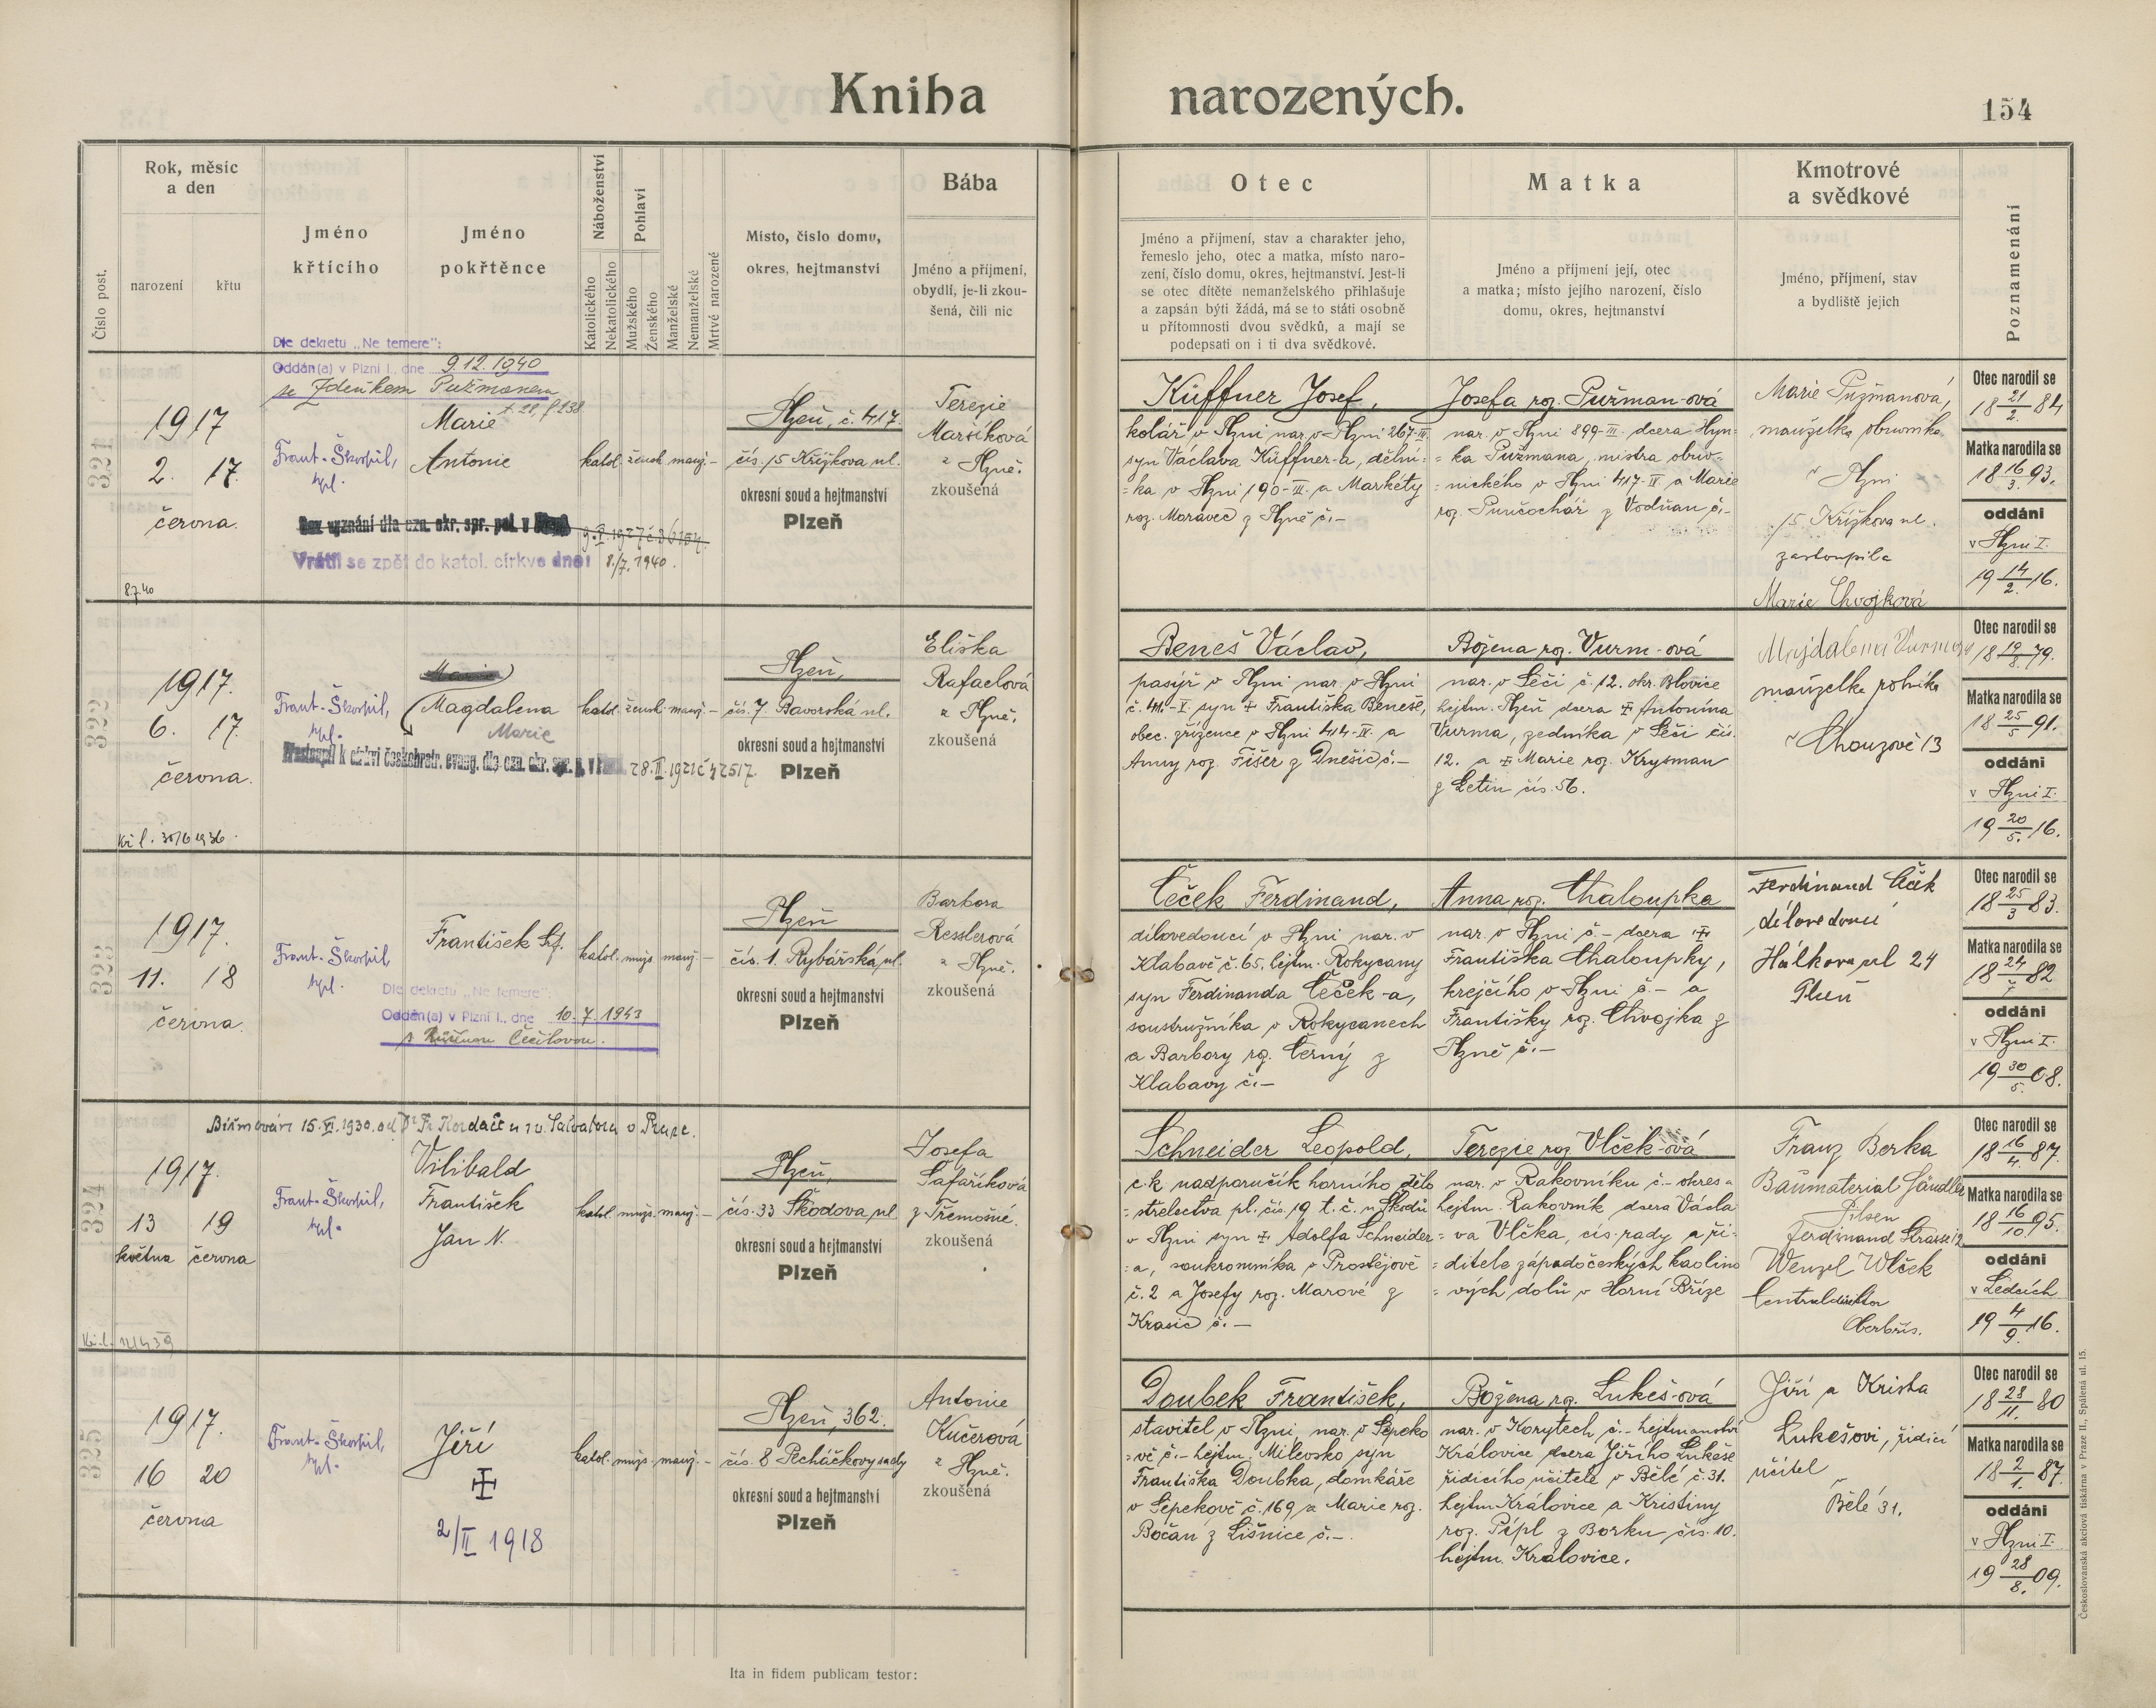 Kniha narozených.
154
Rok, měsíc
a den
narození
křtu
Číslo post.
Jméno
křtícího
Jméno
pokřtěnce
Náboženství
Katolického
Nekatolického
Pohlaví
Mužského
Ženského
Manželské
Nemanželské
Mrtvě narozené
Místo, číslo domu,
okres, hejtmanství
Bába
Jméno a příjmení,
obydlí, je-li zkou-
šená, čili nic
Otec
Jméno a příjmení, stav a charakter jeho,
řemeslo jeho, otec a matka, místo naro-
zení, číslo domu, okres, hejtmanství. Jest-li
se otec dítěte nemanželského přihlašuje
a zapsán býti žádá, má se to státi osobně
u přítomnosti dvou svědků, a mají se
podepsati on i ti dva svědkové.
Matka
Jméno a příjmení její, otec
a matka; místo jejího narození, číslo
domu, okres, hejtmanství
Kmotrové
a svědkové
Jméno, příjmení, stav
a bydliště jejich
Poznamenání
Dle dekretu „Ne temere":
Oddán(a) v Plzni I., dne 9.12.1940
se Zdeňkem Pužmanem
321
1917
2. 17.
června.
8.7.40
Frant. Škorpil,
kpl.
Marie
Antonie
katol. žensk. manž. –
Vrátil se zpět do katol. církve dne: 8./7. 1940.
Plzeň, č. 417.
čís. 15 Křižkova ul.
okresní soud a hejtmanství
Plzeň
Terezie
Maršíková
z Plzně.
zkoušená
Küffner Josef,
kolář v Plzni nar. v Plzni 267-III.
syn Václava Küffner-a, dělní-
=ka v Plzni 190-III. a Markéty
roz. Moravec z Plzně č.–
Josefa roz. Pužman-ová
nar. v Plzni 899-III. dcera Hyn-
=ka Pužmana, mistra obuv-
=nického v Plzni 417-IV a Marie
roz. Punčochář z Vodňan č.–
Marie Pužmanová,
manželka obuvníka
v Plzni
15 Křížkova ul.
zastoupila
Marie Chvojková
Otec narodil se
18 21/2 84
Matka narodila se
18 16/3. 93.
oddáni
v Plzni I.
19 14/2. 16.
322
1917.
6. 17.
června.
Kř. l. 30/6 1936.
Frant. Škorpil,
kpl.
Magdalena
Marie
katol. žensk. manž. –
Přestoupil k církvi českobratr. evang. dle ozn. okr. spr. p. v 28.II.1921 č 42517.
Plzeň,
čís. 7. Bavorská ul.
okresní soud a hejtmanství
Plzeň
Eliška
Rafaelová
z Plzně.
zkoušená
Beneš Václav,
pasíř v Plzni nar. v Plzni
č. 41.-I. syn ‡ Františka Beneše,
obec. zřízence v Plzni 414-IV. a
Anny roz. Fišer z Dnešic č.–
Božena roz. Vurm-ová
nar. v Seči č. 12. okr. Blovice
hejtm. Plzeň dcera ‡ Antonína
Vurma, zedníka v Seči čís.
12. a ‡ Marie roz. Krysman
z Letin čís. 56.
Majdalena Vurmova
manželka rolníka
v Chouzově 13
Otec narodil se
18 19/8. 79.
Matka narodila se
18 25/5 91.
oddáni
v Plzni I.
19 20/5. 16.
323
1917.
11. 18
června.
Frant. Škorpil,
kpl.
František Srf.
katol. mužs. manž. –
Dle dekretu „Ne temere":
Oddán(a) v Plzni I., dne 10. 7. 1943
s Růženou Čečilovou.
Plzeň
čís. 1. Rybářská ul.
okresní soud a hejtmanství
Plzeň
Barbora
Resslerová
z Plzně.
zkoušená
Čeček Ferdinand,
dílovedoucí v Plzni nar. v
Klabavě č. 65. hejtm. Rokycany
syn Ferdinanda Čeček-a,
soustružníka v Rokycanech
a Barbory roz. Černý z
Klabavy č.–
Anna roz. Chaloupka
nar. v Plzni č.– dcera ‡
Františka Chaloupky,
krejčího v Plzni č.– a
Františky roz. Chvojka z
Plzně č.–
Ferdinand Čeček
dílovedoucí
Hálkova ul 24
Plzeň
Otec narodil se
18 25/3 83.
Matka narodila se
18 24/7 82
oddáni
v Plzni I.
19 30/5. 08.
Biřmován 15.VI.1930. od Dr Fr Kordače u sv. Salvatora v Praze.
324
1917.
13 19
května června
Frant. Škorpil,
kpl.
Vilibald
František
Jan N.
katol. mužs. manž. –
Plzeň,
čís. 33 Škodova ul
okresní soud a hejtmanství
Plzeň
Josefa
Šafaříková
z Třemošné.
zkoušená
Schneider Leopold,
c.k. nadporučík horního dělo
=střelectva pl. čís. 19 t. č. u Škodů
v Plzni syn ‡ Adolfa Schneider-
=a, soukromníka v Prostějově
č. 2 a Josefy roz. Marové z
Krasic č.–
Terezie roz. Vlček-ová
nar. v Rakovníku č.– okres a
hejtm. Rakovník dcera Václa
=va Vlčka, cís. rady a ři-
=ditele západočeských kaolino
=vých dolů v Horní Bříze
Franz Berka
Baumaterial Händler
Pilsen
Ferdinand Strasse 12
Wenzel Wlček
Centraldirektor
Oberbřis.
Otec narodil se
18 16/4. 87.
Matka narodila se
18 16/10. 95.
oddáni
v Ledcích
19 4/9. 16.
325
1917.
16 20
června
Frant. Škorpil,
kpl.
Jiří
‡
2/II 1918
katol. mužs. manž. –
Plzeň, 362.
čís. 8 Pecháčkovy sady
okresní soud a hejtmanství
Plzeň
Antonie
Kučerová
z Plzně.
zkoušená
Doubek František,
stavitel v Plzni, nar. v Sepeko
=vě č.– hejtm. Milevsko syn
Františka Doubka, domkáře
v Sepekově č. 169 a Marie roz.
Bočan z Lišnice č.–.
Božena roz. Lukeš-ová
nar. v Korytech č.– hejtmanství
Kralovice dcera Jiřího Lukeše
řídícího učitele v Bělé č. 31.
hejtm. Kralovice a Kristiny
roz. Pépl z Borku čís. 10.
hejtm. Kralovice.
Jiří a Krista
Lukešovi, řídící
učitel
v Bělé 31.
Otec narodil se
18 28/11. 80
Matka narodila se
18 2/1. 87.
oddáni
v Plzni I.
19 28/8. 09.
Ita in fidem publicam testor:
Československá akciová tiskárna v Praze II., Spálená ul. 15.